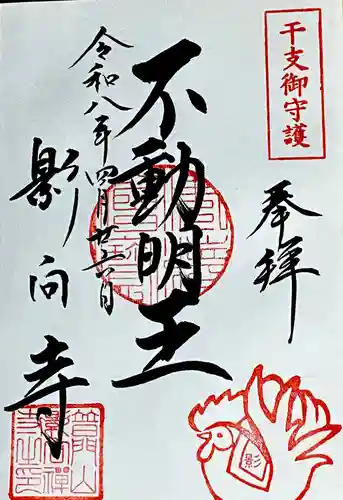 干支御守護
奉拝
不動明王
令和八年四月廿六日
影向寺
影